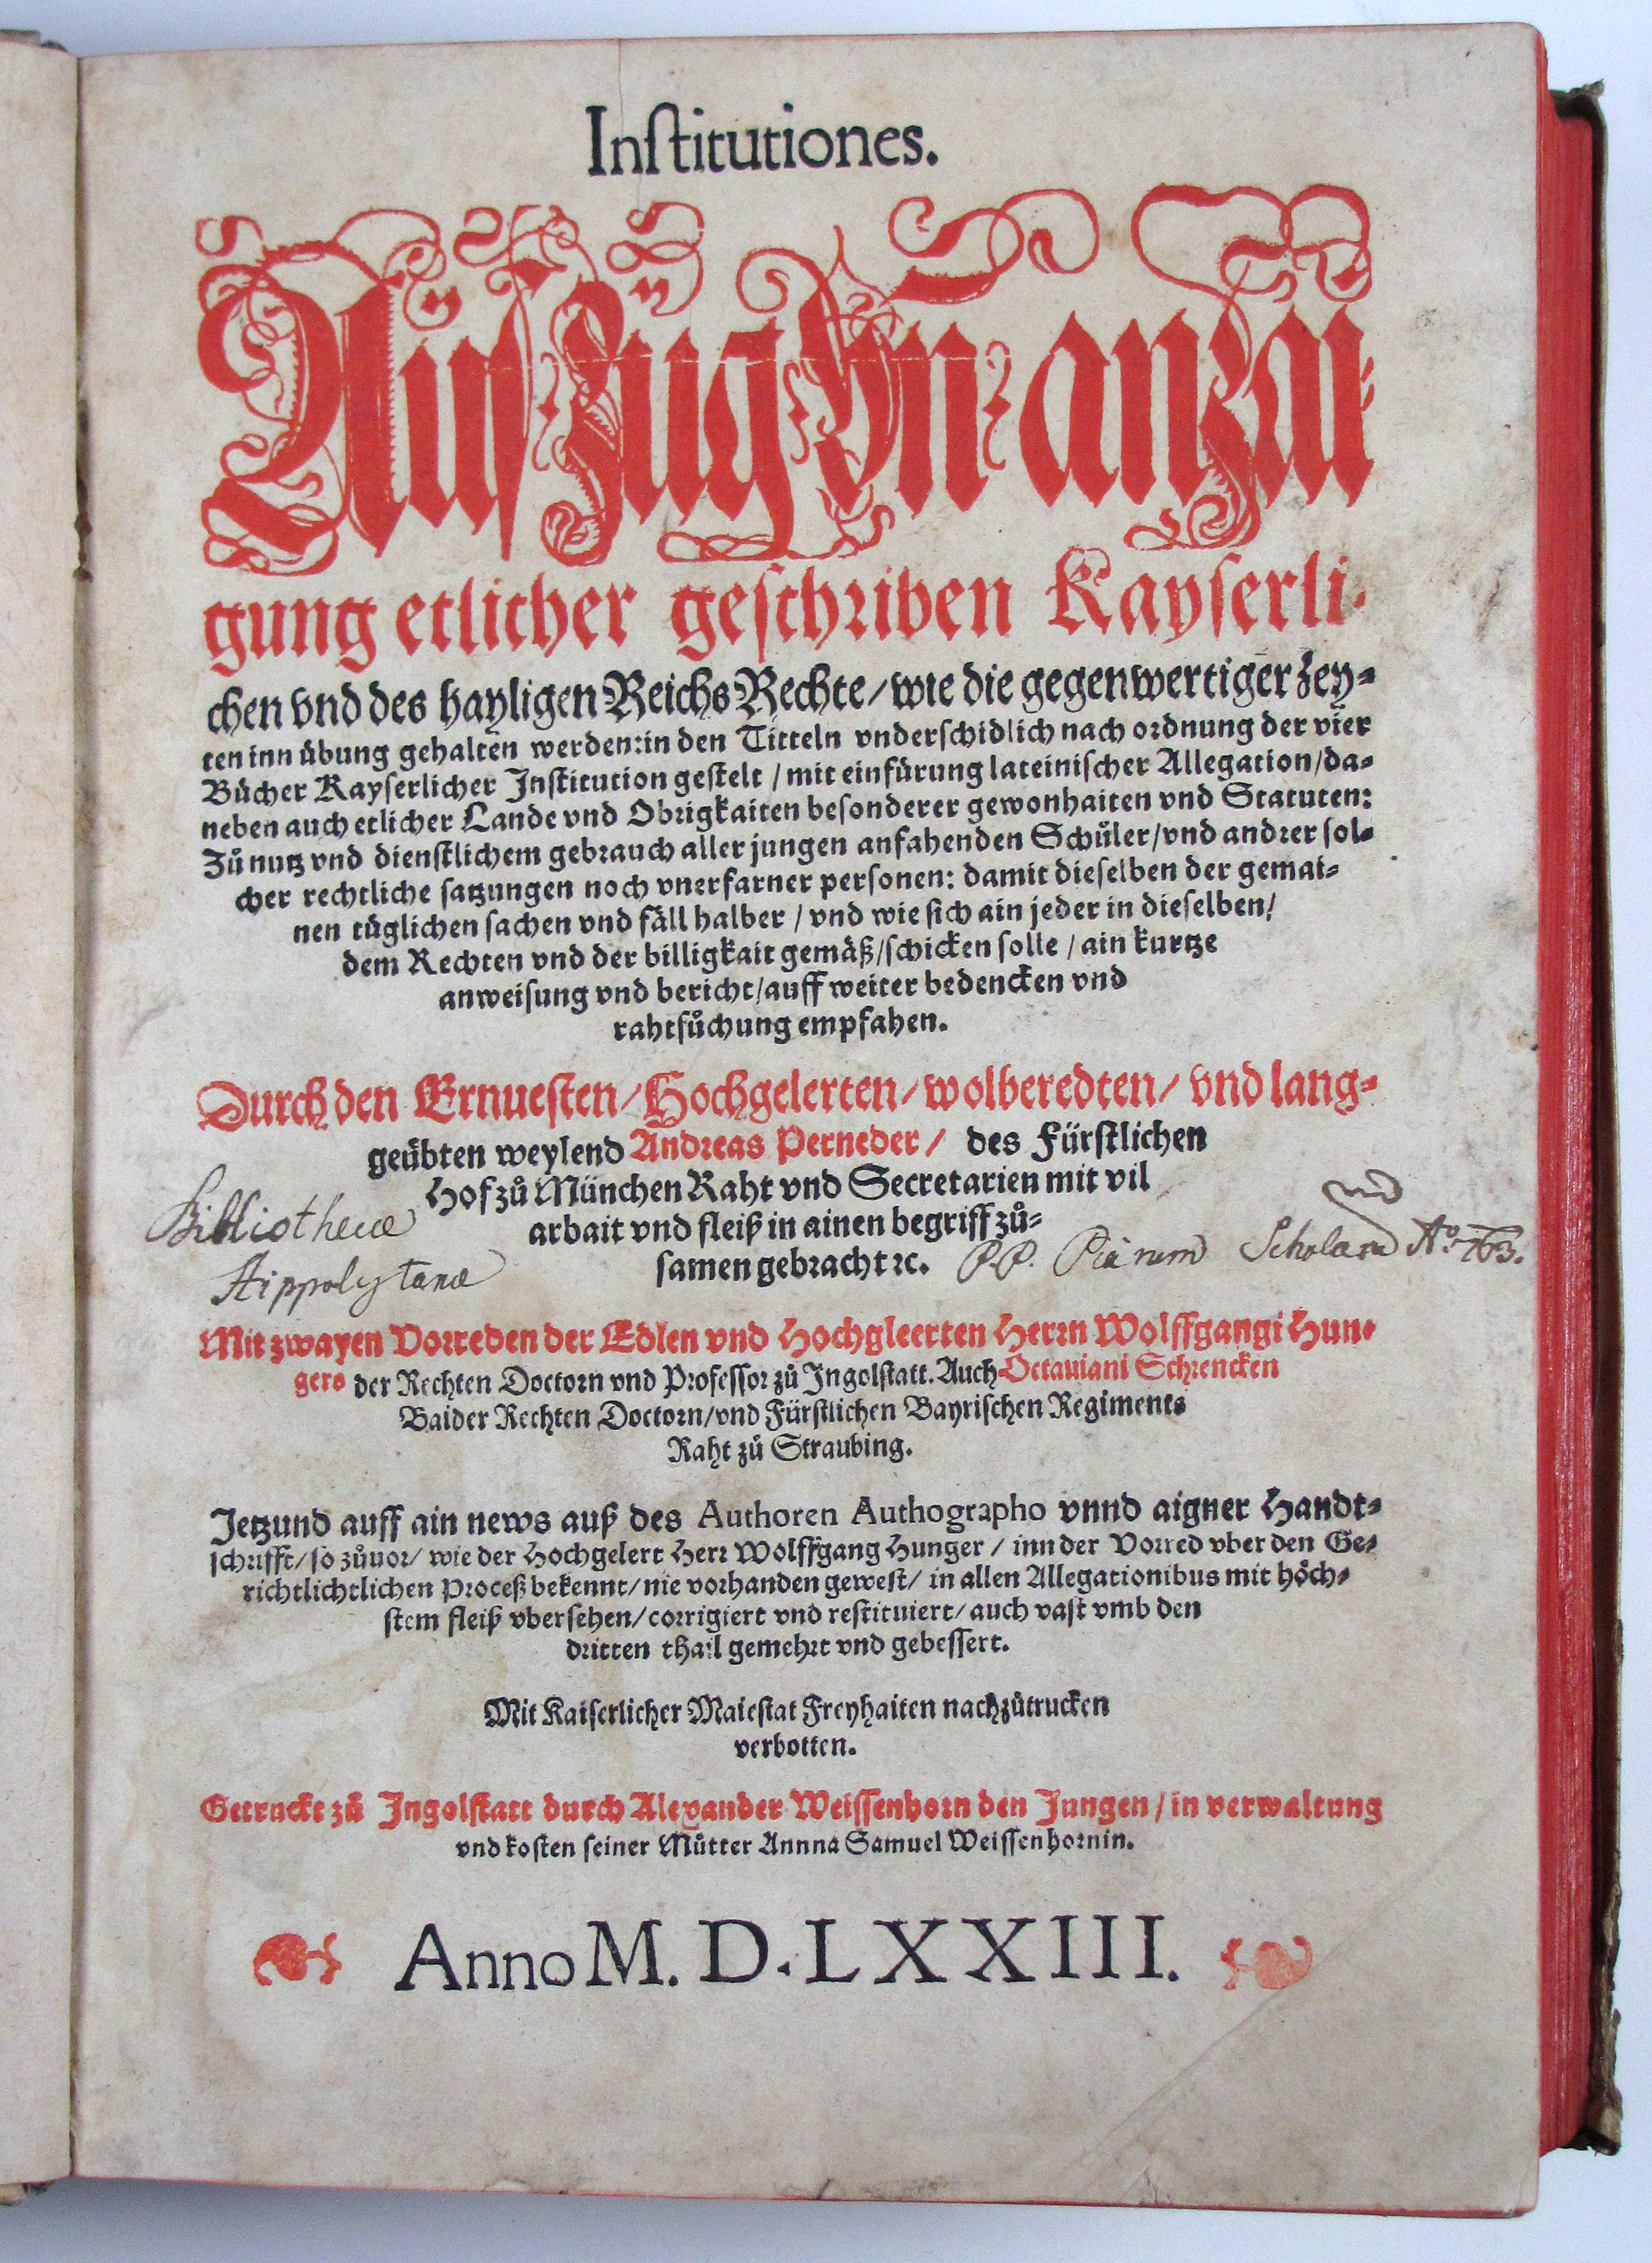 Institutiones.
Auſzug vn̄ anzai-
gung etlicher geſchriben Kayſerli-
chen vnd des hayligen Reichs Rechte/ wie die gegenwertiger Zey-
ten inn übung gehalten werden: in den Titteln vnderſchidlich nach ordnung der vier
Bücher Kayſerlicher Inſtitution geſtelt / mit einfürung lateiniſcher Allegation/da-
neben auch etlicher Lande vnd Obrigkaiten beſonderer gewonhaiten vnd Statuten:
Zů nutz vnd dienſtlichem gebrauch aller jungen anfahenden Schůler/vnd andrer ſol-
cher rechtliche ſatzungen noch vnerfarner perſonen: damit dieſelben der gemai-
nen tüglichen ſachen vnd fäll halber / vnd wie ſich ain jeder in dieſelben/
dem Rechten vnd der billigkait gemäß/ſchicken ſolle / ain kurtze
anweiſung vnd bericht/auff weiter bedencken vnd
rahtſůchung empfahen.
Durch den Ernueſten/ Hochgelerten/ wolberedten/ vnd lang-
geübten weylend Andreas Perneder/ des Fürſtlichen
Hof zů München Raht vnd Secretarien mit vil
arbait vnd fleiß in ainen begriff zů-
ſamen gebracht ꝛc. P.P. Piarum Scholaru Ao 763.
Bibliothecæ
Hippolytanæ
Mit zwayen Vorreden der Edlen vnd Hochgleerten Herrn Wolffgangi Hun-
gers der Rechten Doctorn vnd Profeſſor zů Ingolſtatt. Auch Octauiani Schrencken
Baider Rechten Doctorn/vnd Fürſtlichen Bayriſchen Regiments
Raht zů Straubing.
Jetzund auff ain news auß des Authoren Authographo vnnd aigner Handt-
ſchrifft/ ſo zůuor/ wie der Hochgelert Herr Wolffgang Hunger / inn der Vorred vber den Ge-
richtlichtlichen Proceß bekennt/ nie vorhanden geweſt/ in allen Allegationibus mit höch-
ſtem fleiß vberſehen/ corrigiert vnd reſtituiert/ auch vaſt vmb den
dritten thail gemehrt vnd gebeſſert.
Mit Kaiſerlicher Maieſtat Freyhaiten nachzůtrucken
verbotten.
Getruckt zů Ingolſtatt durch Alexander Weiſſenhorn den Jungen / in verwaltung
vnd koſten ſeiner Můtter Annna Samuel Weiſſenhornin.
Anno M. D. LXXIII.